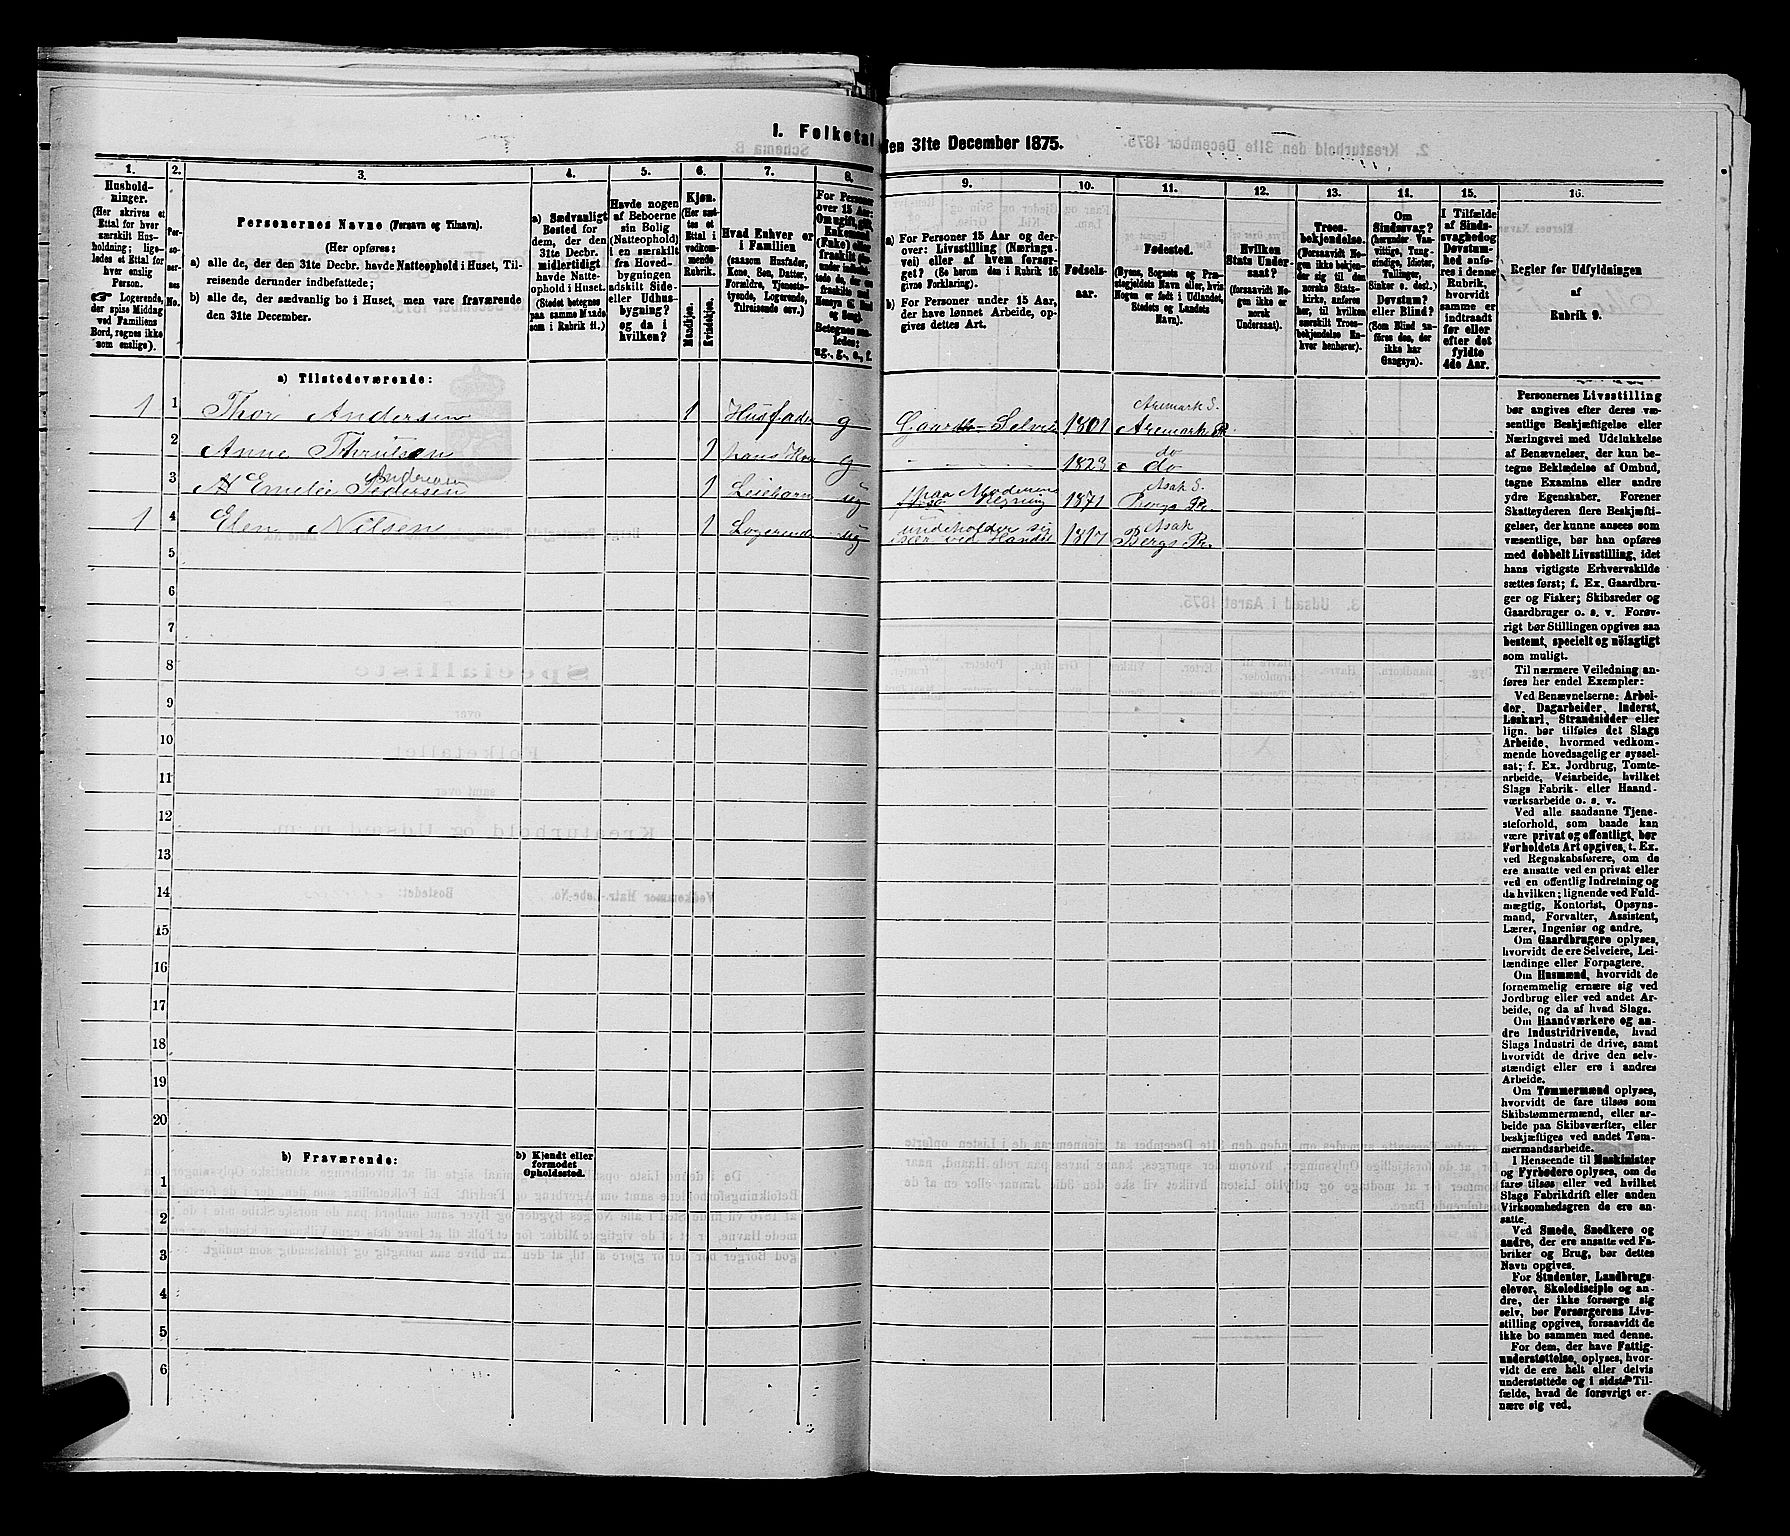 I. Folketal den 31te December 1875.
1.
2.
3.
4.
5.
6.
7.
8.
9.
10.
11.
12.
13.
14.
15.
16.
Hushold-
ninger.
(Her skrives et
Ettal for hver
særskilt Hus-
holdning; lige-
ledes et Ettal for
hver enslig
Person.
☞ Logerende,
der spise Middag
ved Familiens
Bord, regnes ikke
som enslige).
Per-
so-
ner-
nes
No.
Personernes Navne (Fornavn og Tilnavn).
(Her opføres:
a) alle de, der den 31te Decbr. havde Natteophold i Huset, Til-
reisende derunder indbefattede;
b) alle de, der sædvanlig bo i Huset, men vare fraværende
den 31te December.
a) Sædvanligt
Bosted for
dem, der den
31te Decbr.
midlertidigt
havde Natte-
ophold i Huset.
(Stedet betegnes
paa samme Maade
som i Rubrik 11.)
Havde nogen
af Beboerne
sin Bolig
(Natteophold)
i en særskilt
fra Hoved-
bygningen
adskilt Side-
eller Udhus-
bygning?
og da i
hvilken?
Kjøn.
(Her sæt-
tes et
Ettal i
vedkom-
mende
Rubrik.
Mandkjøn.
Kvindekjøn.
Hvad Enhver er
i Familien
(saasom Husfader,
Kone, Søn, Datter,
Forældre, Tjeneste-
tyende, Logerende,
Tilreisende osv.)
For Personer
over 15 Aar:
Om ugift, gift,
Enkemand
(Enke) eller
fraskilt
Betegnes saa-
ledes:
ug., g., e., f.
a) For Personer 15 Aar og der-
over: Livsstilling (Nærings-
vei) eller af hvem forsør-
get? (Se herom den i Rubrik 16
givne Forklaring).
b) For Personer under 15 Aar,
der have lønnet Arbeide, op-
gives dettes Art.
Fødsels-
aar.
Fødested.
(Byens, Sognets og Præ-
stegjeldets Navn eller, hvis
Nogen er født i Udlandet,
Stedets og Landets
Navn).
Hvilken
Stats Under-
saat?
(forsaavidt No-
gen ikke er
norsk
Undersaat).
Troes-
bekjendelse.
(Forsaavidt No-
gen ikke bekjen-
der sig til den
norske Stats-
kirke, anføres
her, til hvilken
særskilt Troes-
bekjendelse En-
hver henhører).
Om
Sindssvag?
(herunder Van-
vittige, Tung-
sindige, Idioter,
Tullinger,
Sinker o. desl.)
Døvstum?
eller Blind?
(Som Blind an-
føres den, der
ikke har
Gangsyn).
I Tilfælde
af Sinds-
svaghed og
Døvstum-
hed anfø-
res i denne
Rubrik,
hvorvidt
samme er
indtraadt
før eller
efter det
fyldte
4de Aar.
Regler for Udfyldningen
af
Rubrik 9.
a) Tilstedeværende:
1 1 Thor Andersen 1 Husfader g Gaardb- Selveie 1801 Aremark S. Aremark Pr.
2 Anne Thrulsen 1 hans Kone g 1823 do do
3 Emelie Pedersen Andersen 1 Leiebarn ug paa Moderens Regning 1871 Asak S. Bergs Pr.
1 4 Elene Nilsen 1 Logerende ug underholder sig ved Handel 1817 Asak Bergs Pr.
5
6
7
8
9
10
11
12
13
14
15
16
17
18
19
20
b) Fraværende:
b) Kjendt eller
formodet
Opholdssted.
1
2
3
4
5
6
Personernes Livsstilling
bør angives efter deres væ-
sentlige Beskjæftigelse eller
Næringsvei med Udelukkelse
af Benævnelser, der kun be-
tegne Beklædelse af Ombud,
tagne Examina eller andre
ydre Egenskaber. Forener
Skatteyderen flere Beskjæfti-
gelser, der kunne ansees som
væsentlige, bør han opføres
med dobbelt Livsstilling, idet
hans vigtigste Erhvervskilde
sættes først; f. Ex. Gaardbru-
ger og Fisker; Skibsreder og
Gaardbruger o. s. v. Forøv-
rigt bør Stillingen opgives saa
bestemt, specielt og nøiagtigt
som muligt.
Til nærmere Veiledning an-
føres her endel Exempler:
Ved Benævnelserne: Arbei-
der, Dagarbeider, Inderst,
Løskarl, Strandsidder eller
lign. bør tilføies det Slags
Arbeide, hvormed vedkom-
mende hovedsagelig er syssel-
sat; f. Ex. Jordbrug, Tomte-
arbeide, Veiarbeide, hvilket
Slags Fabrik- eller Haand-
værksarbeide o. s. v.
Ved alle saadanne Tjene-
steforhold, som baade kan
være privat og offentligt, bør
Forholdets Art opgives, t. Ex.
ved Regnskabsførere, om de
ere ansatte ved en privat eller
ved en offentlig Indretning og
da hvilken; lignende ved Fuld-
mægtig, Kontorist, Opsyns-
mand, Forvalter, Assistent,
Lærer, Ingeniør og andre.
Om Gaardbrugere oplyses,
hvorvidt de ere Selveiere, Lei-
lændinge eller Forpagtere.
Om Husmænd, hvorvidt de
fornemmelig ernære sig ved
Jordbrug eller ved andet Ar-
beide, og da af hvad Slags.
Om Haandværkere og an-
dre Industridrivende, hvad
Slags Industri de drive, samt
hvorvidt de drive den selv-
stændigt eller ere i andres
Arbeide.
Om Tømmermænd oplyses,
hvorvidt de fare tilsøs som
Skibstømmermænd, eller ar-
beide paa Skibsværfter, eller
beskjæftiges ved andet Tøm-
mermandsarbeide.
I Henseende til Maskinister
og Fyrbødere oplyses, om de
fare tilsøs eller ved hvilket
Slags Fabrikdrift eller anden
Virksomhedsgren de ere an-
satte.
Ved Smede, Snedkere og
andre, der ere ansatte ved Fa-
briker og Brug, bør dettes
Navn opgives.
For Studenter, Landbrugs-
elever, Skoledisciple og an-
dre, der ikke forsørge sig
selv, bør Forsørgerens Livs-
stilling opgives, forsaavidt de
ikke bo sammen med denne.
For dem, der have Fattig-
understøttelse, oplyses, hvor-
vidt de ere helt eller delvis
understøttede og i sidste Til-
fælde, hvad de forøvrigt er-
nære sig ved.